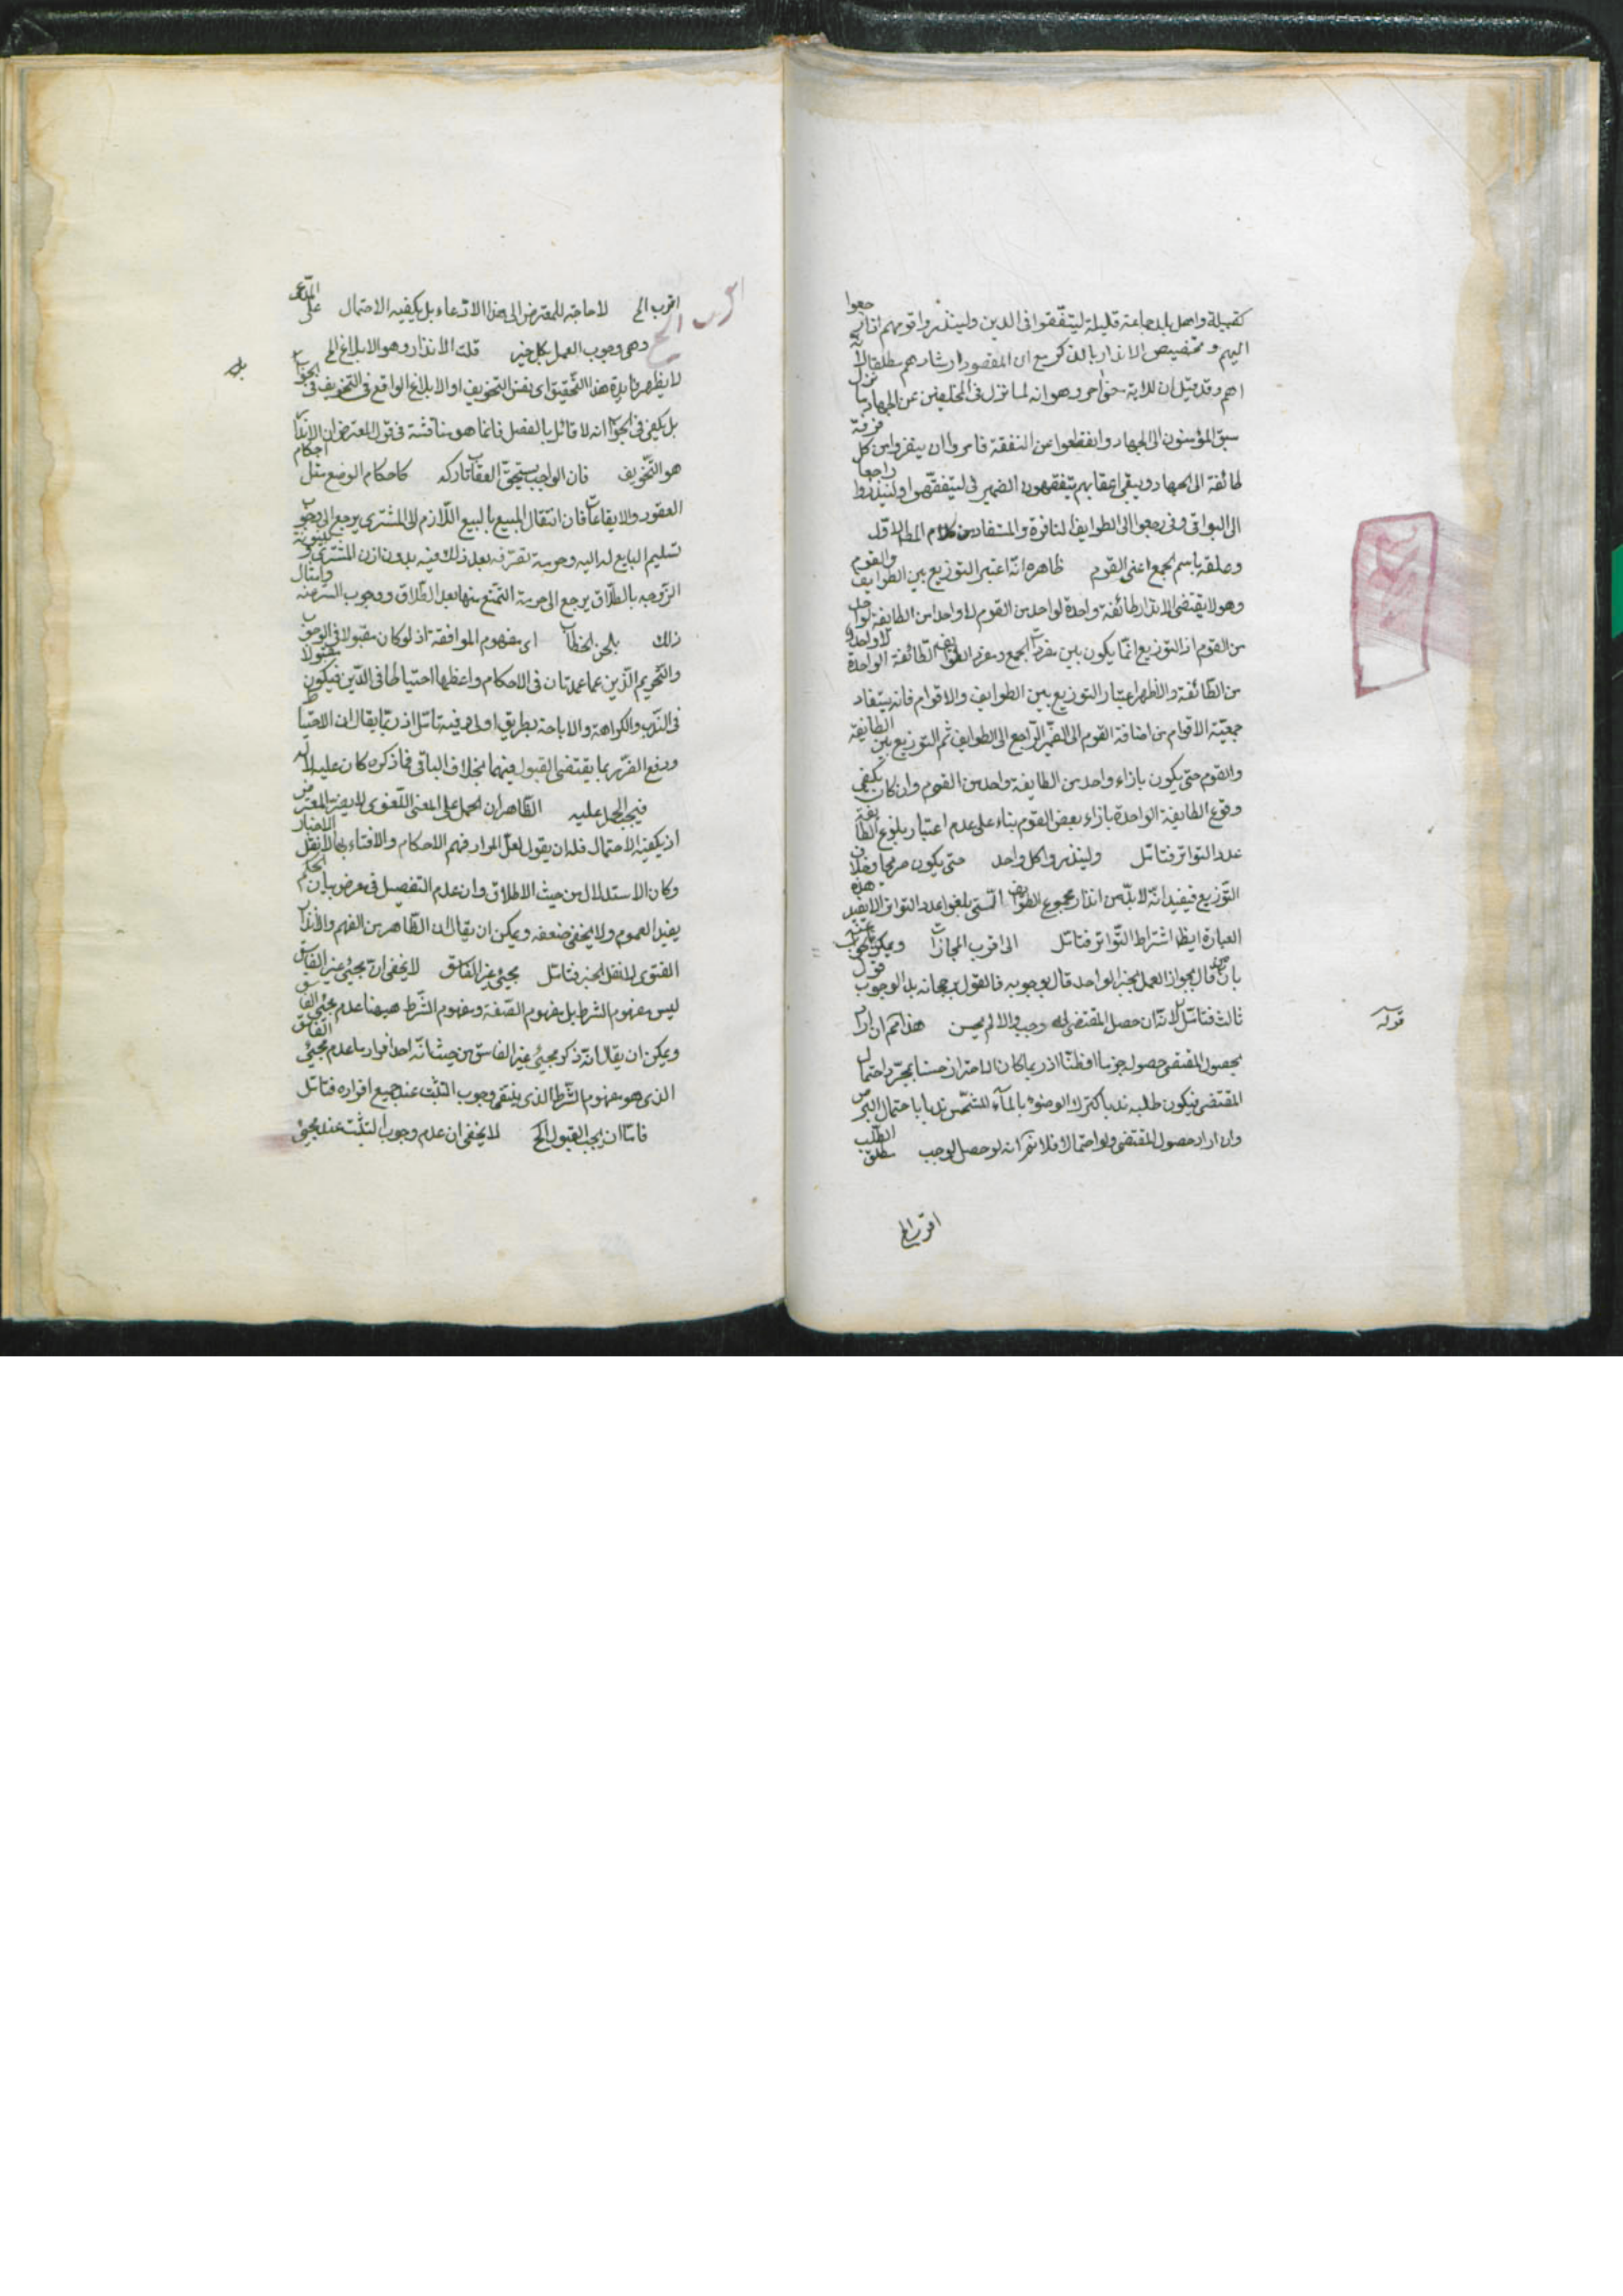 كقبيلة واهل بلد جماعة قليلة ليتفقهوا فى الدين ولينذروا قومهم اذا رجعوا
اليهم وتخصيص الانذار بالذكر مع ان المقصود ارشادهم مطلقا لانه
اهم وقد قيل ان للاية معنى اخر وهو انه لما نزل فى المتخلفين عن الجهاد ما نزل
سبق المؤمنون الى الجهاد وانقطعوا عن التفقه فامروا ان ينفروا من كل فرقة
طائفة الى الجهاد ويبقى اعقابهم يتفقهون الضمير فى ليتفقهوا ولينذروا راجعا
الى البواقى وفى رجعوا الى الطوايف النافرة والمستفاد من كلام المط الاول
وعلقه باسم الجمع اعنى القوم ظاهره انه اعتبر التوزيع بين الطوايف والقوم
وهو لا يقتضى الا انذار طائفة واحدة لواحد من القوم لا واحد من الطائفة لواحد
من القوم اذ التوزيع انما يكون بين مفردات الجمع ومفرد الطوايف الطائفة الواحدة لا واحد
من الطائفة والاظهر اعتبار التوزيع بين الطوايف والاقوام فانه يستفاد
جمعية الاقوام من اضافة القوم الى الضمير الراجع الى الطوايف ثم التوزيع بين الطايفة
والقوم حتى يكون بازاء واحد من الطايفة واحد من القوم وان كان يكفى
وقوع الطايفة الواحدة بازاء بعض القوم بناء على عدم اعتبار بلوغ الطايفة
عدد التواتر فتامل ولينذروا كل واحد حتى يكون
التوزيع فيفيد انه لا بد من انذار مجموع الطوايف التى بلغوا عدد التواتر لا يفيد هذه
العبارة ايضا اشتراط التواتر فتامل الى اقرب المجازات ويمكن
بان من قال بجواز العمل بخبر الواحد قال بوجوبه فالقول برجحانه بلا وجوب قول
ثالث فتامل لانه ان حصل المقتضى له وجب والا لم يحسن هذا مم ان اراد
بحصول المقتضى حصوله جزما او ظنا اذ ربما كان الاحتراز حسنا بمجرد احتمال
المقتضى فيكون طلبه ندبا كترك الوضوء بالماء المشمس ندبا باحتمال البرص
وان اراد حصول المقتضى ولو احتمالا فلا نم انه لو حصل لوجب مطلق الطلب
اقرب الخ
قوله
اقرب الخ لا حاجة للمعترض الى هذا الادعاء بل يكفيه الاحتمال على المدعى
وهى وجوب العمل بكل خبر قلت الانذار وهو الابلاغ الخ
لا يظهر فايدة هذا التحقيق اى نفس التخويف او الابلاغ الواقع فى التخويف فى الجواب
بل يكفى فى الجواب انه لا قائل بالفصل فانما هو مناقشة فى قول المعترض ان الانذار
هو التخويف فان الواجب يستحق العقاب تاركه كاحكام الوضع مثل احكام
العقود والايقاعات فان انتقال المبيع بالبيع اللازم الى المشترى يرجع الى وجوب
تسليم البايع له اليه وحرمة تصرفه بعد ذلك فيه بدون اذن المشترى وبينونة
الزوجه بالطلاق يرجع الى حرمة التمتع منها بعد الطلاق ووجوب التستر منه وامثال
ذلك بلحن الخطاب اى مفهوم الموافقة اذ لو كان مقبولا فى الوجوب
والتحريم الذين هما عمدتان فى الاحكام واعظمها احتياطا فى الدين فيكون مقبولا
فى الندب والكراهة والاباحة بطريق اولى وفيه تامل اذ ربما يقال ان الاحتياط
ودفع الضرر بما يقتضى القبول فيهما بخلاف البواقى فما ذكره كان عليه لا له
فيجب الحمل عليه الظاهر ان الحمل على المعنى اللغوى لا يضر المعترض
اذ يكفيه الاحتمال فله ان يقول لعل المراد فهم الاحكام والافتاء بها لا نقل الاخبار
وكان الاستدلال من حيث الاطلاق وان عدم التفصيل فى معرض بيان الحكم
يفيد العموم ولا يخفى ضعفه ويمكن ان يقال ان الظاهر من الفهم والانذار
الفتوى لا نقل الخبر فتامل بمجئ غير الفاسق لا يخفى ان مجئ غير الفاسق
ليس مفهوم الشرط بل مفهوم الصفة ومفهوم الشرط هيهنا عدم مجئ الفاسق
ويمكن ان يقال انه ذكر مجئ غير الفاسق من حيث انه احد افراد ما عدم مجئ الفاسق
الذى هو مفهوم الشرط الذى ينتفى وجوب التثبت عند جميع افراده فتامل
فاما ان يجب القبول الخ لا يخفى ان عدم وجوب التثبت عند مجئ